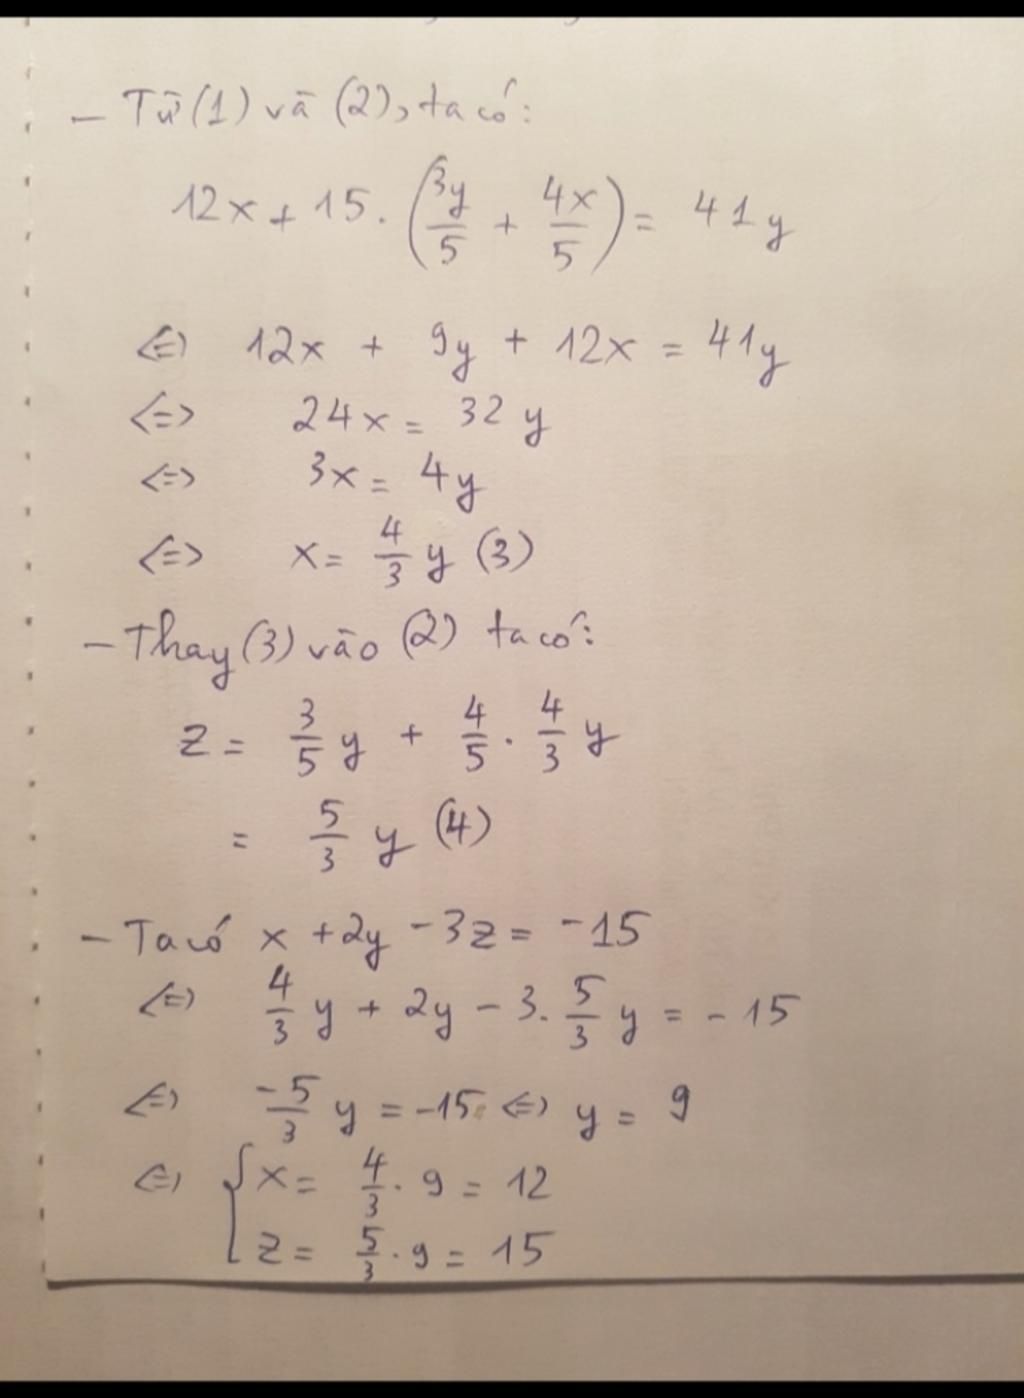 - Từ (1) và (2), ta có:
12x + 15. (3y/5 + 4x/5) = 41y
<=> 12x + 9y + 12x = 41y
<=> 24x = 32y
<=> 3x = 4y
<=> x = 4/3 y (3)
- Thay (3) vào (2) ta có:
z = 3/5 y + 4/5 . 4/3 y
= 5/3 y (4)
- Ta có x + 2y - 3z = -15
<=> 4/3 y + 2y - 3. 5/3 y = -15
<=> -5/3 y = -15 <=> y = 9
<=> { x = 4/3 . 9 = 12
z = 5/3 . 9 = 15